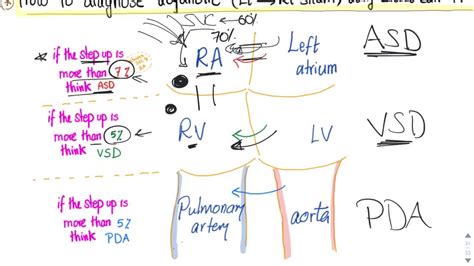 How to diagnose acyanotic (Lt → Rt shunt) using
SVC ← 60%
70%
* if the step up is
more than 7%
think ASD
RA
Left
atrium
ASD
if the step up is
more than 5%
think VSD
RV
LV
VSD
if the step up is
more than 5%
think PDA
Pulmonary
artery
aorta
PDA